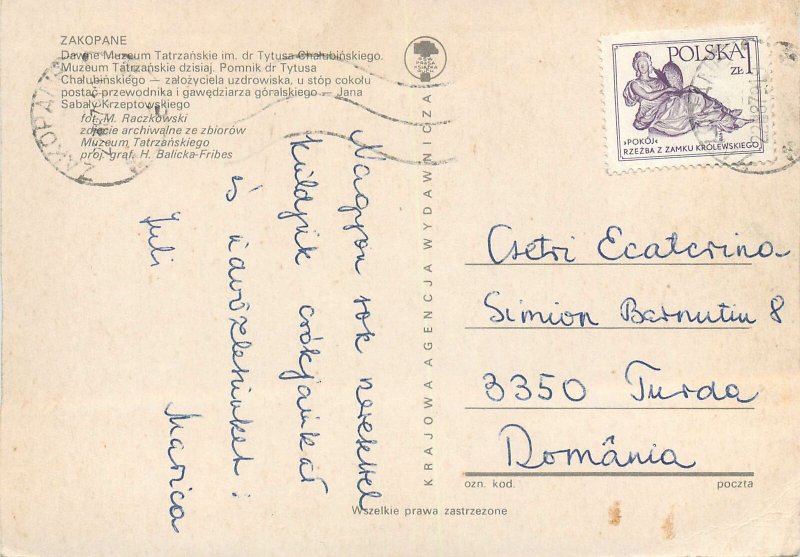 ZAKOPANE
Dawne Muzeum Tatrzańskie im. dr Tytusa Chałubińskiego.
Muzeum Tatrzańskie dzisiaj. Pomnik dr Tytusa
Chałubińskiego — założyciela uzdrowiska, u stóp cokołu
postać przewodnika i gawędziarza góralskiego — Jana
Sabały Krzeptowskiego
fot. M. Raczkowski
zdjęcie archiwalne ze zbiorów
Muzeum Tatrzańskiego
proj. graf. H. Balicka-Fribes
Nagyon sok szeretettel
küldjük csókjainkat
és üdvözletünket:
Juli
Marica
KRAJOWA AGENCJA WYDAWNICZA
POLSKA 1
ZŁ
»POKÓJ«
RZEŹBA Z ZAMKU KRÓLEWSKIEGO
ZAKOPANE
Csetri Ecaterina
Simion Barnutiu 8
3350 Turda
România
ozn. kod. poczta
Wszelkie prawa zastrzeżone